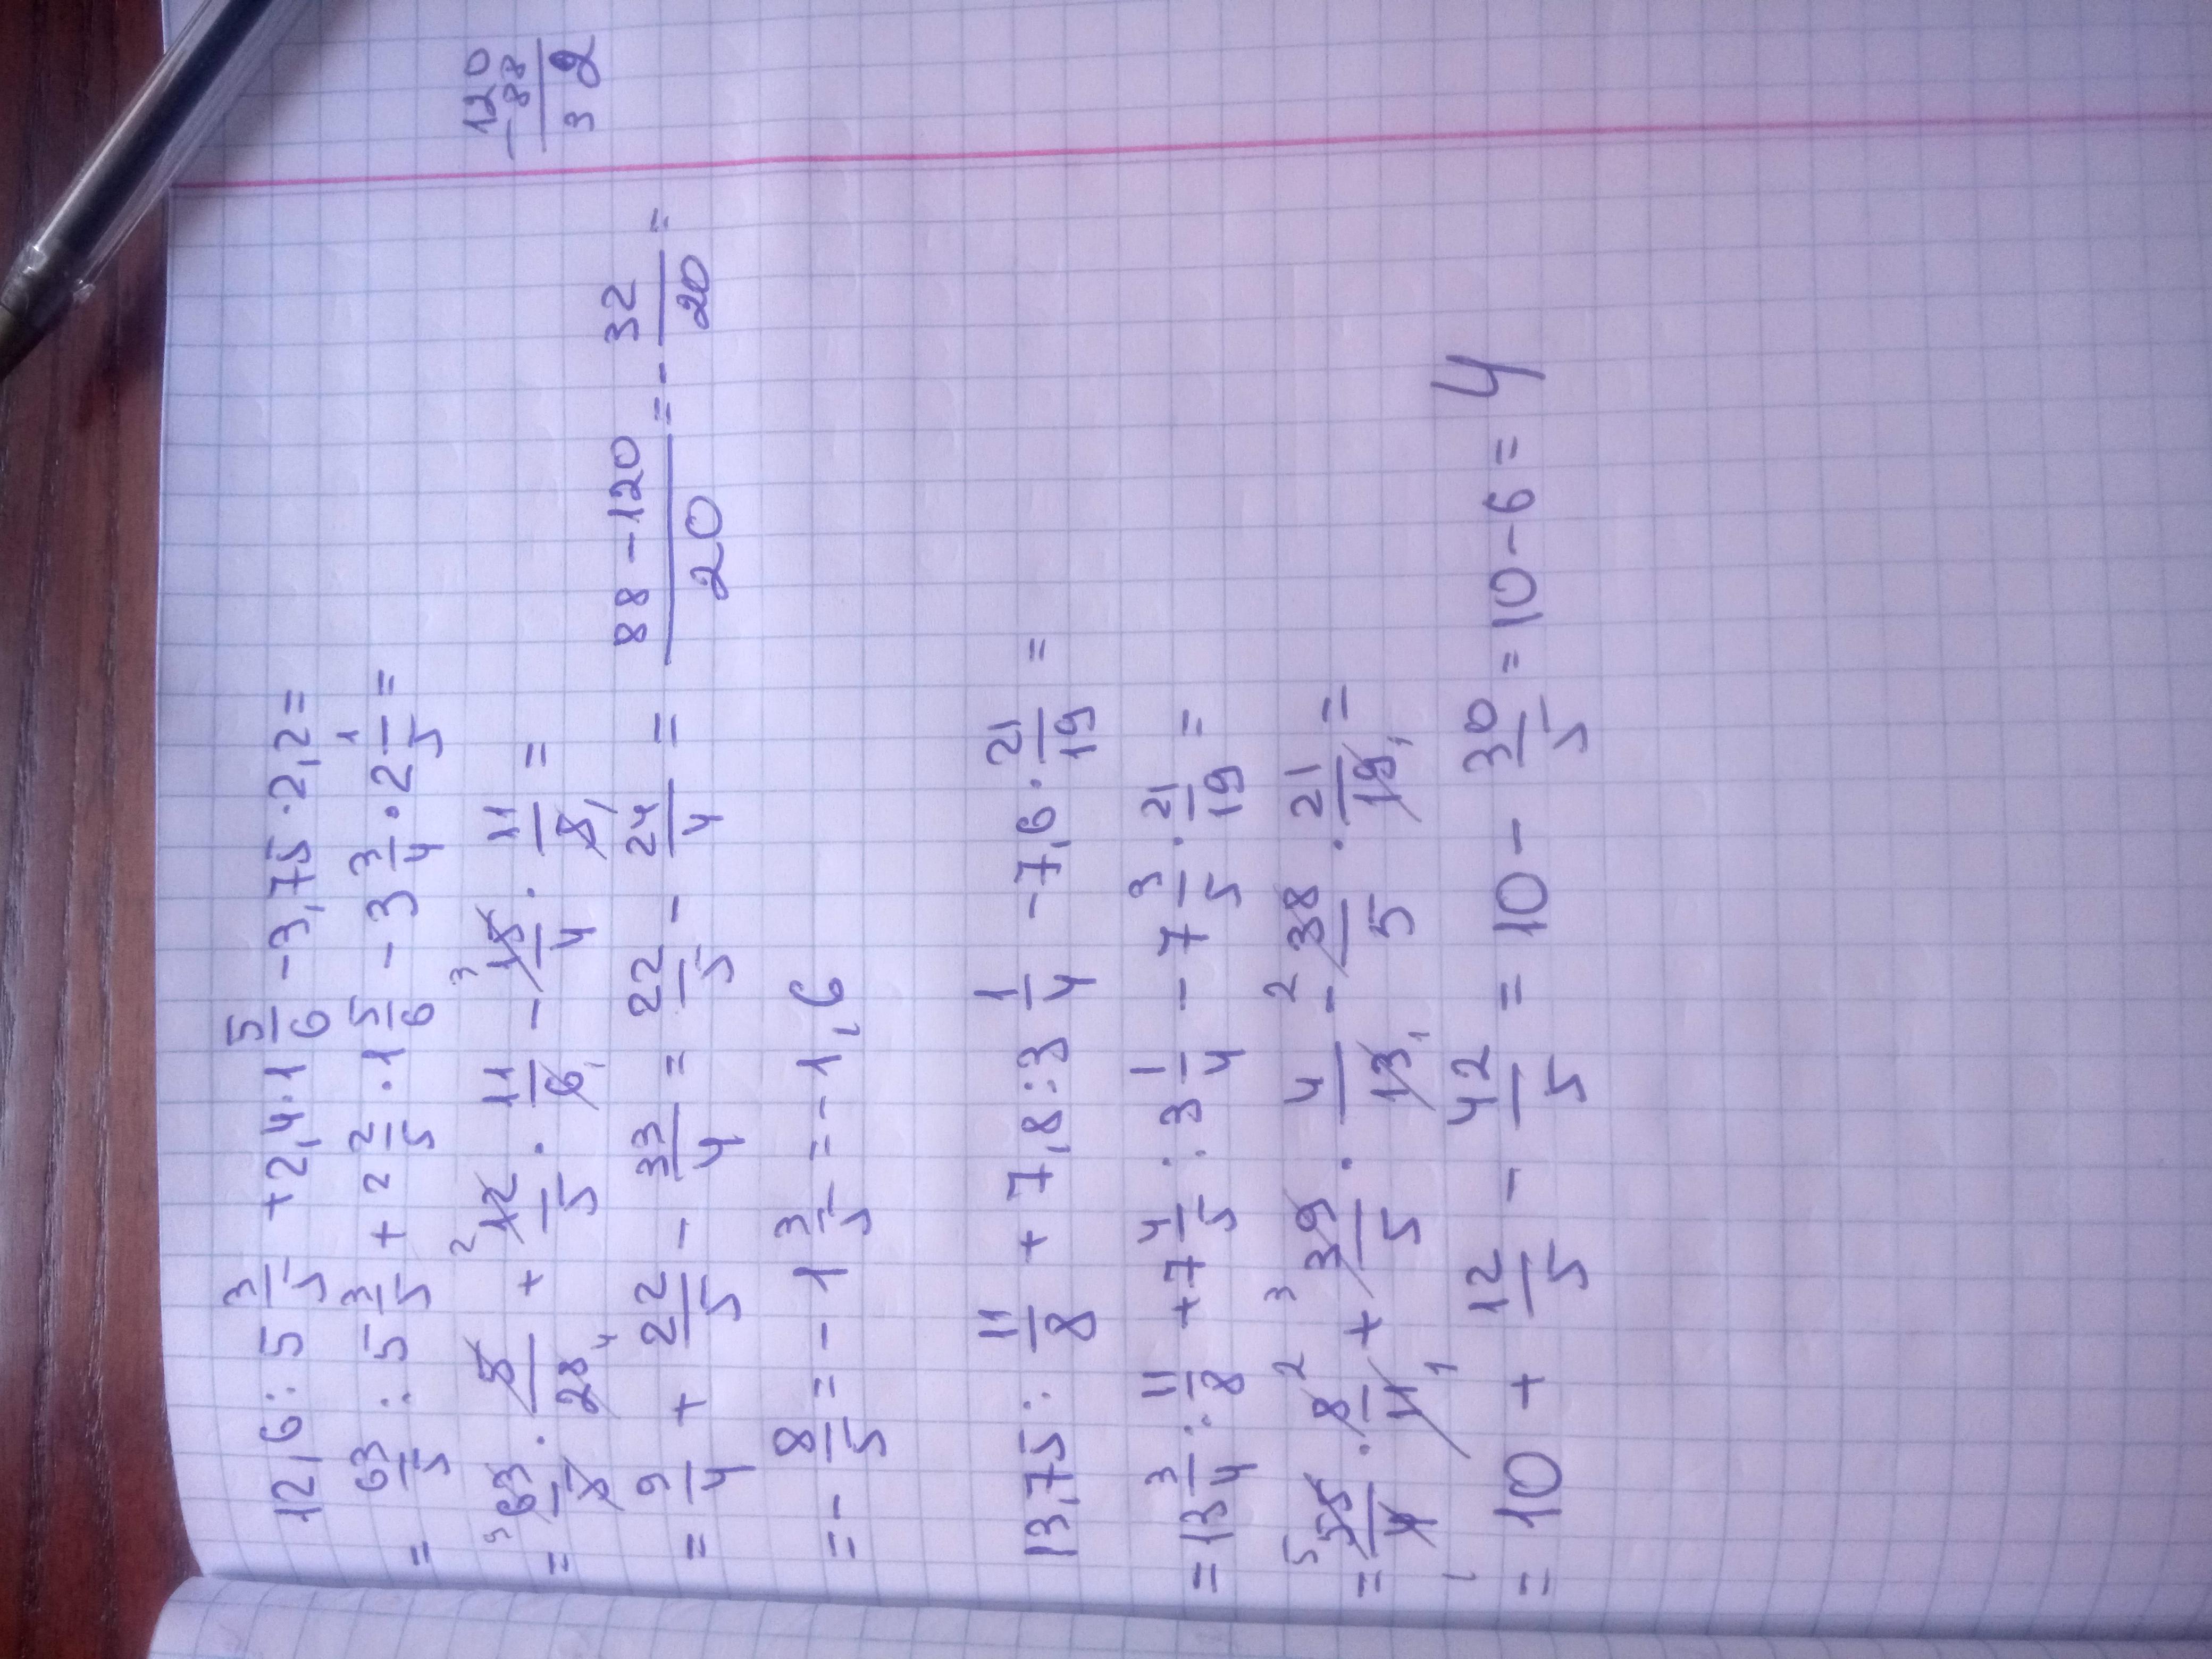 12,6 : 5 3/5 + 2,4 · 1 5/6 - 3,75 · 2,2 =
= 63/5 : 5 3/5 + 2 2/5 · 1 5/6 - 3 3/4 · 2 1/5 =
= 63/5 · 5/28 + 12/5 · 11/6 - 15/4 · 11/5 =
= 9/4 + 22/5 - 33/4 = 22/5 - 24/4 = 88 - 120/20 = - 32/20 =
= - 8/5 = - 1 3/5 = - 1,6
120
- 88
32
13,75 : 11/8 + 7,8 : 3 1/4 - 7,6 · 21/19 =
= 13 3/4 : 11/8 + 7 4/5 : 3 1/4 - 7 3/5 · 21/19 =
= 55/4 · 8/11 + 39/5 · 4/13 - 38/5 · 21/19 =
= 10 + 12/5 - 42/5 = 10 - 30/5 = 10 - 6 = 4